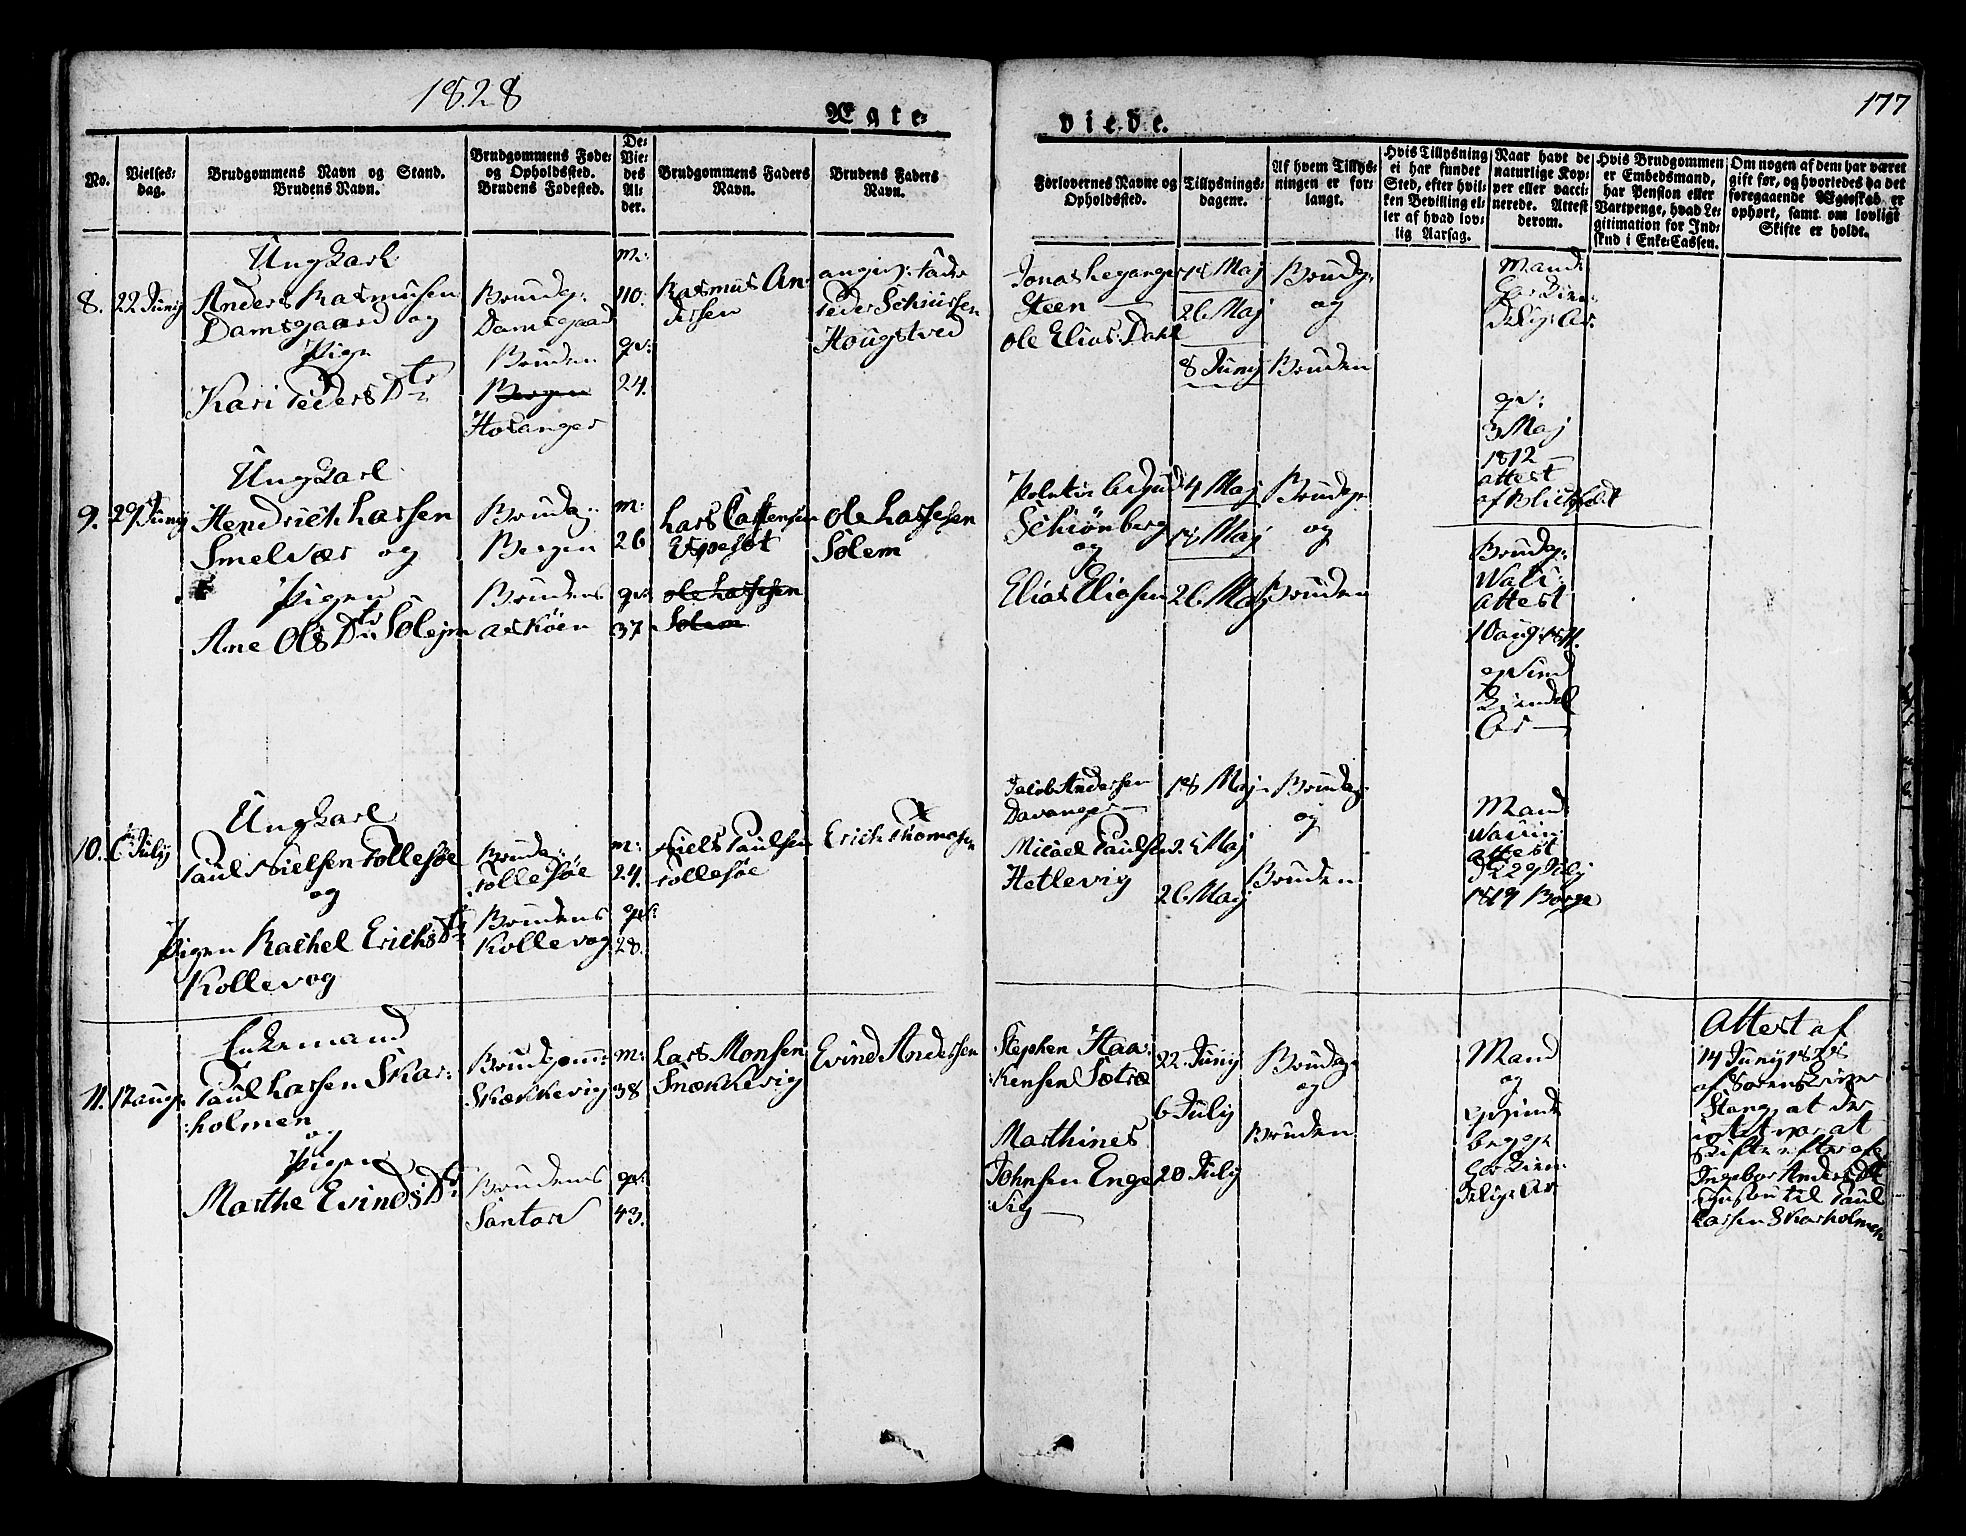 1828
177
Ægte-
viede.
No.
Vielses-
dag.
Brudgommens Navn og Stand.
Brudens Navn.
Brudgommens Føde-
og Opholdssted.
Brudens Fødested.
De
Vie-
des
Al-
der.
Brudgommens Faders
Navn.
Brudens Faders
Navn.
Forlovernes Navne og
Opholdssted.
Tillysnings-
dagene.
Af hvem Tillys-
ningen er for-
langt.
Hvis Tillysning
ei har fundet
Sted, efter hvil-
ken Bevilling el-
ler af hvad lov-
lig Aarsag.
Naar havt de
naturlige Kop-
per eller vacci-
nerede. Attest
derom.
Hvis Brudgommen
er Embedsmand,
har Pension eller
Vartpenge, hvad Le-
gitimation for Ind-
skud i Enke-Cassen.
Om nogen af dem har været
gift før, og hvorledes da det
foregaaende Ægteskab er
ophørt, samt om lovligt
Skifte er holdt.
8.
22 Junij
Ungkarl
Anders Rasmusen
Damsgaard og
Pige
Kari Peders Dtr
Brudg:
Damsgaard
Bruden
Bergen
Hosanger
m:
40.
qv:
24.
Rasmus An-
dersen
angiv: Fader
Peder Schiursen
Hougstved
Jonas Leganger
Steen
Ole Elias Dahl
18 Maj
26 Maj
8 Junij
Brudg:
og
Bruden
Mand:
qv:
3 Maj
1812
attest
af Blichfeldt
9.
29 Junij
Ungkarl
Hendrich Larsen
Smelvær og
Pigen
Ane Ols Dtr Solejm
Brudg:
Bergen
Brudens
Askøen
m:
26
qv:
37
Lars Castensen
Espesøt
Ole Lassesen
Solem
Ole Lassesen
Solem
Schiønberg
og
Elias Eliasen
4 Maj
18 Maj
26 Maj
Brudg:
og
Bruden
Brudg:
Attest
10 aug: 1811.
10.
6 Julij
Ungkarl
Paul Nielsen Follesøe
og
Pigen Rachel Erichs Dtr
Kollevog
Brudg:
Follesøe
Brudens
Kollevog
m:
24.
qv:
28.
Niels Paulsen
Follesøe
Erich Thomasen
Jacob Andersen
Davanger
Micael Paulsen
Hetlevig
18 Maj
25 Maj
26 Maj
Brudg:
og
Bruden
Mand
Vaccin:
attest
22 Julij
1819
11.
17 aug:
Enkemand
Paul Larsen Skar-
holmen
og
Pigen
Marthe Evinds Dtr
Brudgom:
Skækkevig
Brudens
Santor
m:
38
qv:
43.
Lars Monsen
Snækkevig
Evind Andersen
Stephen Haa-
kensen Sætræ
Marthines
Johnsen Enge-
vig
22 Junij
6 Julij
20 Julij
Brudg:
og
Bruden
Mand
og
qvinde
begge
Attest af
14 Junij 1828
af Sorenskriver
Stang, at der
intet var at
Skifte efter afd
Ingebor Anders Dtr
Hustru til Paul
Larsen Skarholmen